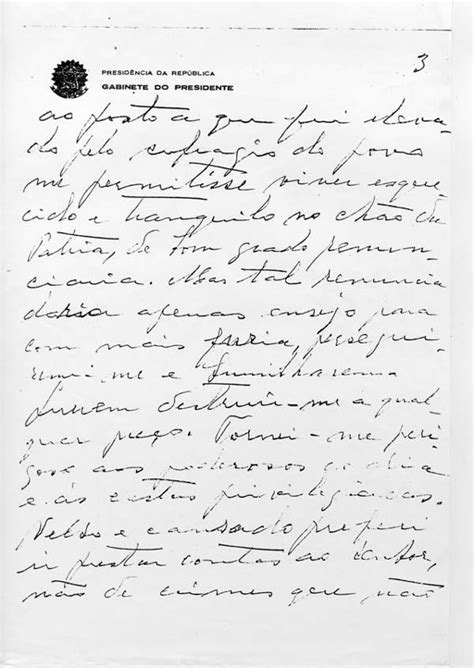 3
PRESIDÊNCIA DA REPÚBLICA
GABINETE DO PRESIDENTE
ao posto a que fui eleva-
do pelo sufragio do povo
me permitisse viver esque-
cido e tranquilo no chão da
Patria, de bom grado renun-
ciaria. Mas tal renuncia
daria apenas ensejo para
com mais furia, persegui-
rem-me e humilharem.
Querem destruir-me a qual-
quer preço. Tornei-me peri-
goso aos poderosos do dia
e ás castas privilegiadas.
Velho e cansado preferi
ir prestar contas ao Senhor,
não de crimes que não